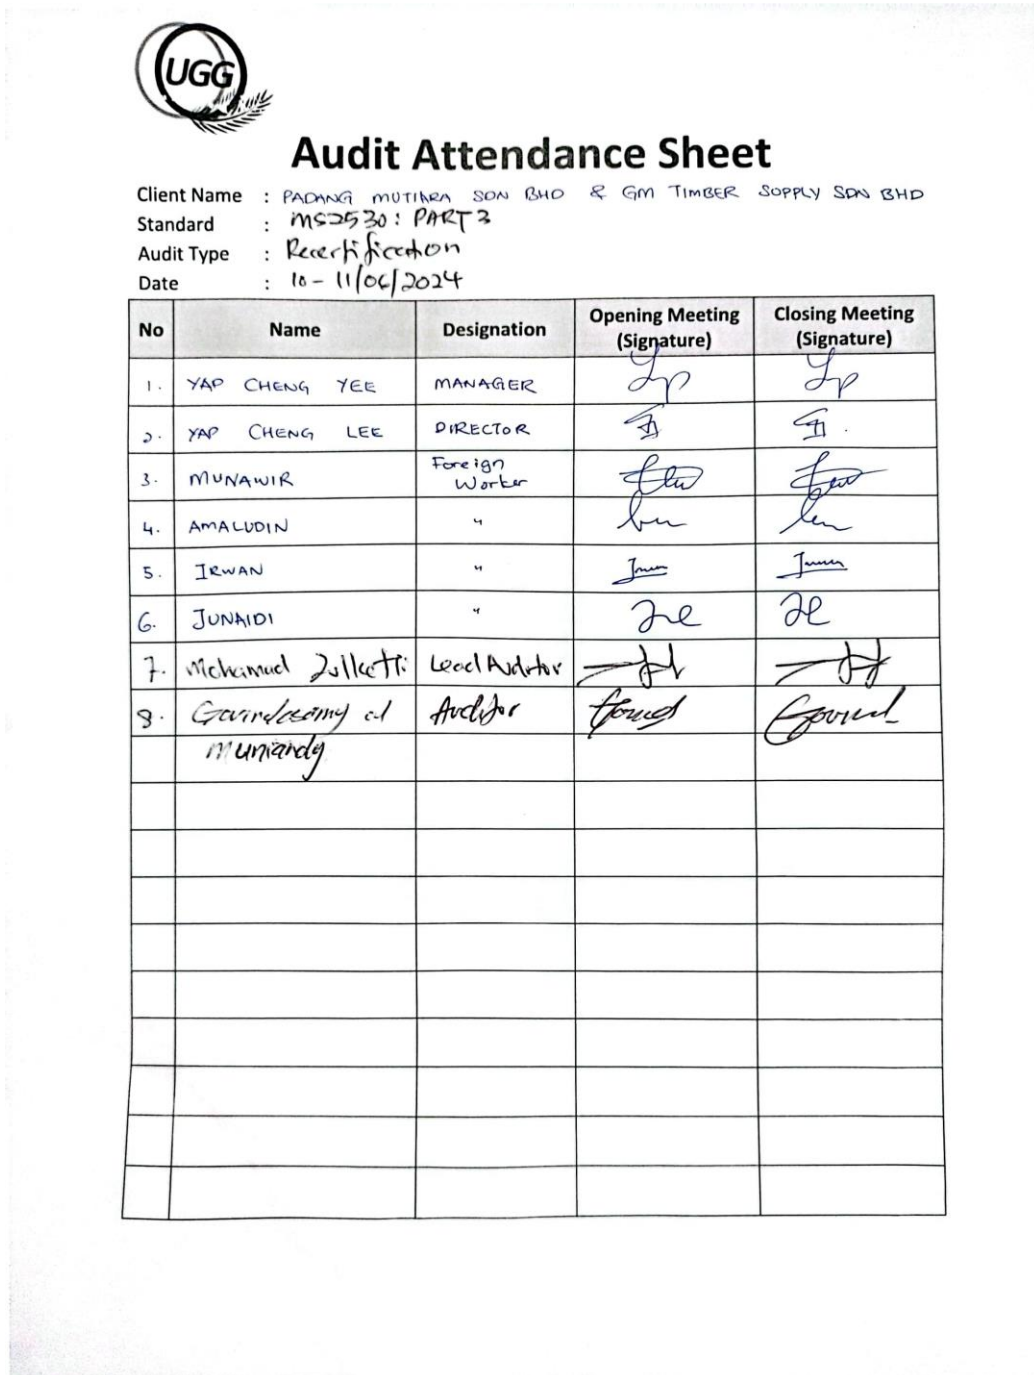 UGG
Audit Attendance Sheet
Client Name : PADANG MUTIARA SDN BHD & GM TIMBER SUPPLY SDN BHD
Standard : MS2530: PART 3
Audit Type : Recertification
Date : 10 - 11/06/2024
No Name Designation Opening Meeting (Signature) Closing Meeting (Signature)
1. YAP CHENG YEE MANAGER
2. YAP CHENG LEE DIRECTOR
3. MUNAWIR Foreign Worker
4. AMALUDIN "
5. IRWAN "
6. JUNAIDI "
7. Mohamad Lead Auditor
8. Govindasamy al Auditor
Muniandy